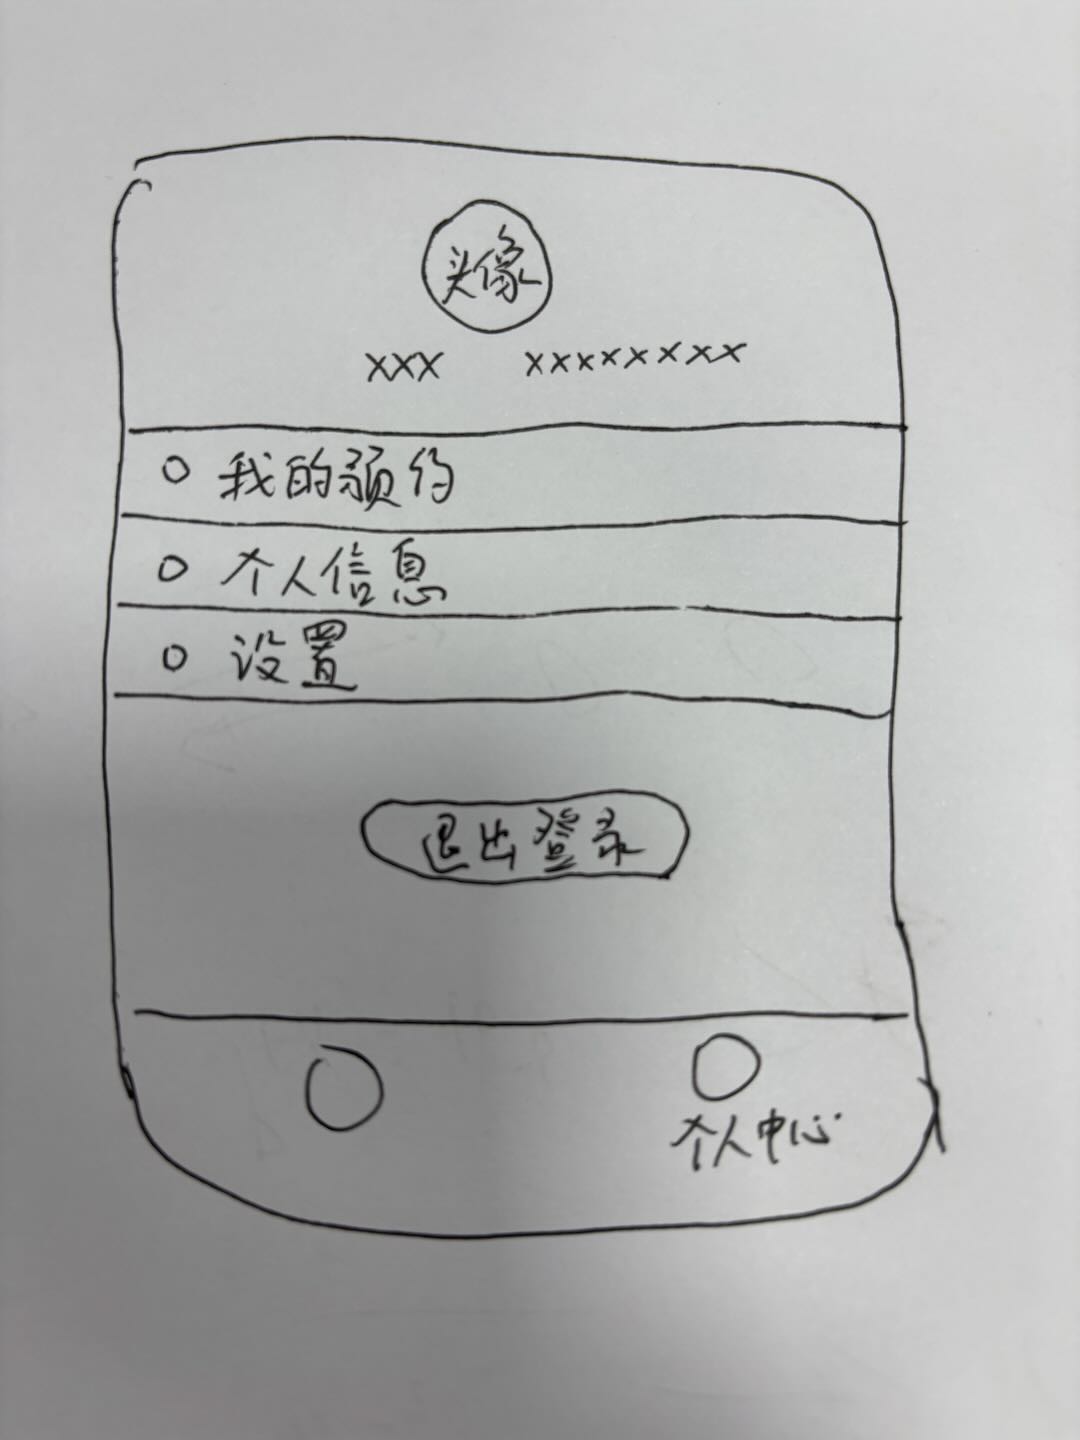 头像
XXX XXXXXXXX
我的预约
个人信息
设置
退出登录
个人中心